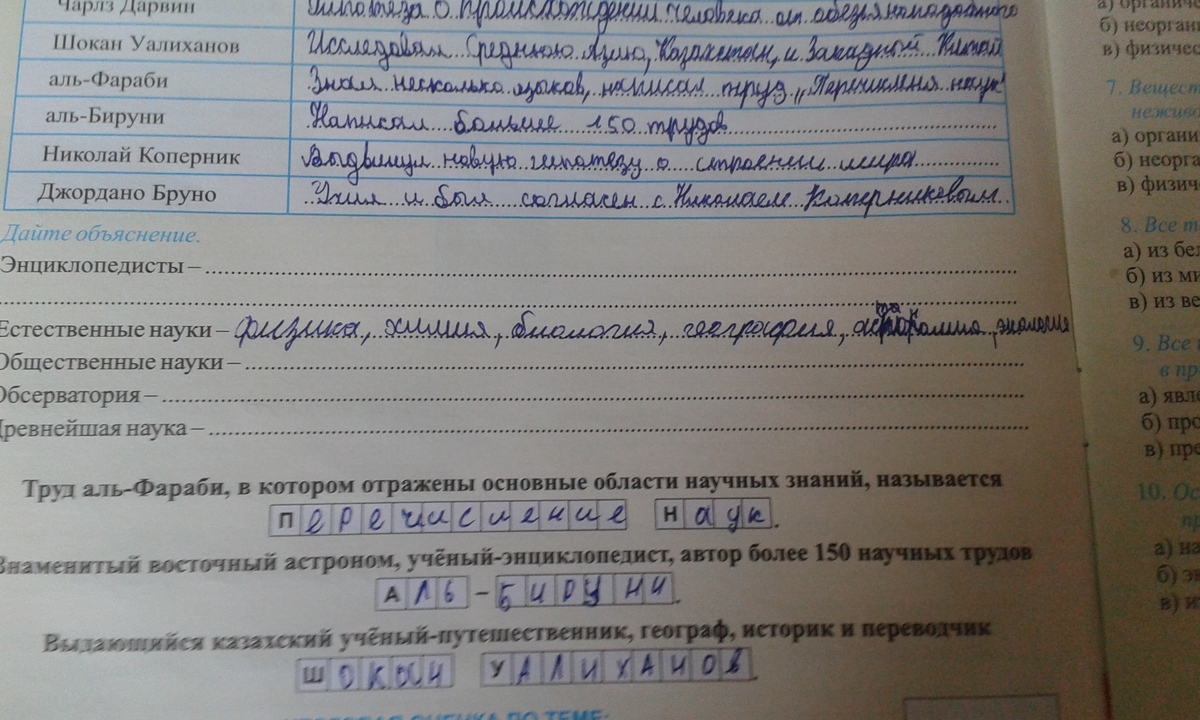 Чарлз Дарвин Гипотеза о происхождении человека от обезьяноподобного
Шокан Уалиханов Исследовал Среднюю Азию, Казахстан, и Западной Китай
аль-Фараби Знал несколько языков, написал труд "Перечисления наук"
аль-Бируни Написал больше 150 трудов
Николай Коперник Выдвинул новую гипотезу о строении мира
Джордано Бруно Учил и был согласен с Николаем Коперниковым
Дайте объяснение.
Энциклопедисты –
Естественные науки – физика, химия, биология, география, астрономия, экология
Общественные науки –
Обсерватория –
Древнейшая наука –
Труд аль-Фараби, в котором отражены основные области научных знаний, называется
Перечисление Наук.
Знаменитый восточный астроном, учёный-энциклопедист, автор более 150 научных трудов
Аль – Бируни.
Выдающийся казахский учёный-путешественник, географ, историк и переводчик
Шокан Уалиханов.
ОЦЕНКА ПО ТЕМЕ:
а) органиче
б) неорган
в) физичес
7. Вещест
нежив
а) органи
б) неорга
в) физич
8. Все т
а) из бел
б) из ми
в) из ве
9. Все
в пр
а) явл
б) про
в) пре
10. Ос
а) на
б) эн
в) и